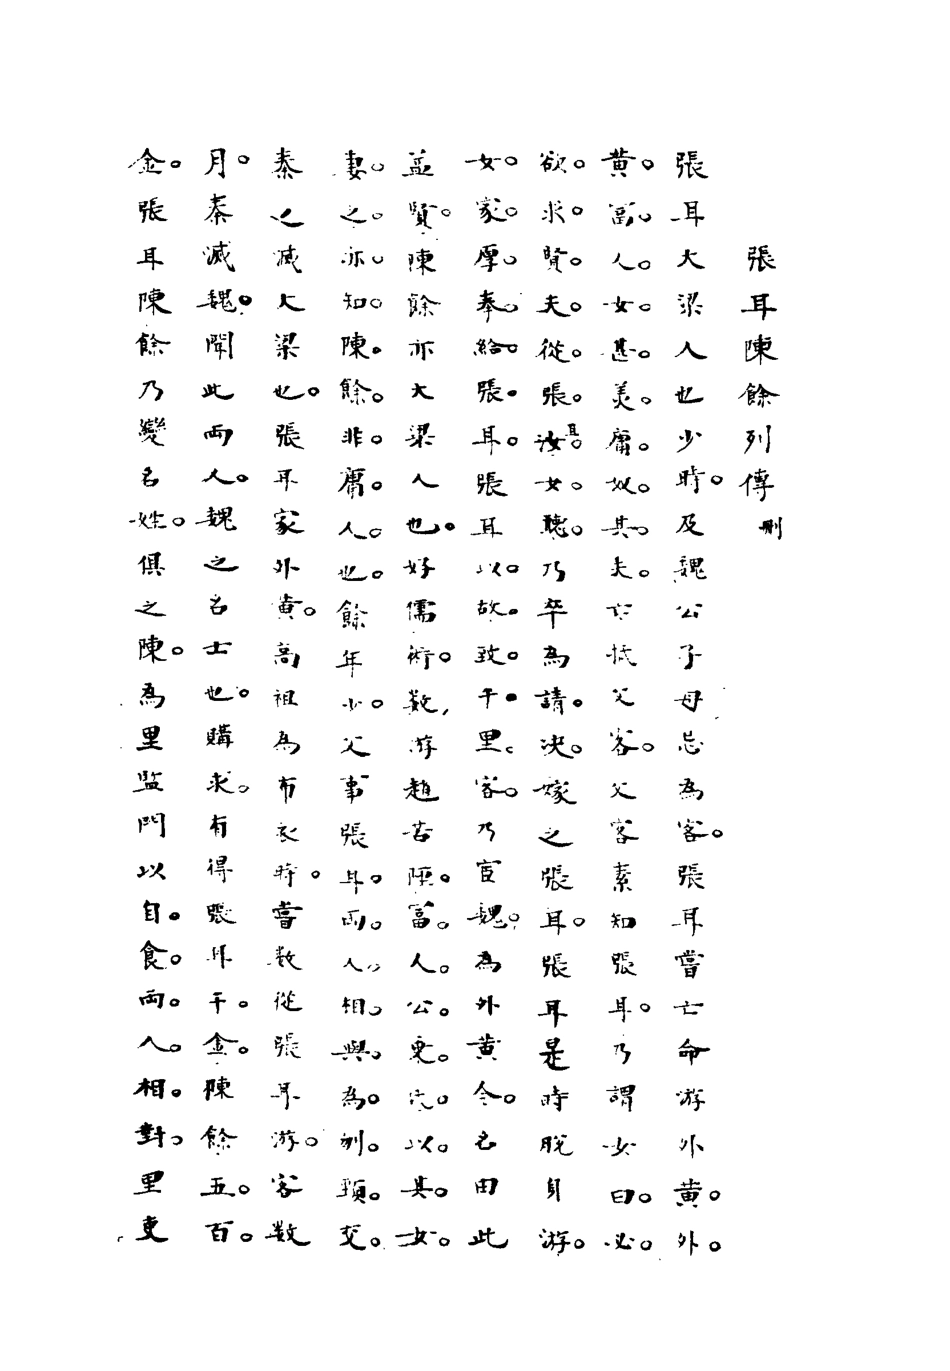 張耳陳餘列傳 刪
張耳大梁人也少時。及魏公子毋忌為客。張耳嘗亡命游外黃。外。
黃。富。人。女。甚。美。庸。奴。其。夫。亡抵父客。父客素知張耳。乃謂女曰。必。
欲。求。賢。夫。從。張。汝耳。女。聽。乃卒為請。決。嫁之張耳。張耳是時脫身游。
女。家。厚。奉。給。張。耳。張耳以。故。致。千。里。客。乃宦魏。為外黃令。名由此
益賢。陳餘亦大梁人也。好儒術。數,游趙苦陘。富。人。公。乘。氏。以。其。女。
妻。之。亦。知。陳。餘。非。庸。人。也。餘年少。父事張耳。兩。人。相。與。為。刎。頸。交。
秦之滅大梁也。張耳家外黃。高祖為布衣時。嘗數從張耳游。客數
月。秦滅魏。聞此兩人。魏之名士也。購求。有得張耳千。金。陳餘五。百。
金。張耳陳餘乃變名姓。俱之陳。為里監門以自。食。兩。人。相。對。里吏